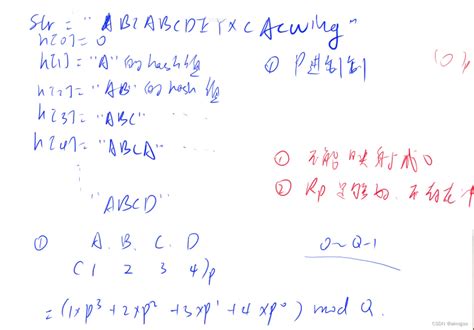 Str = "ABCABCDEYXCAcwing"
h[0] = 0
h[1] = "A" 的 hash 值
h[2] = "AB" 的 hash 值
h[3] = "ABC"
h[4] = "ABCA"
"ABCD"
① P进制
① 不能映射成0
② Rp 足够好,不存在
① A. B. C. D
(1 2 3 4)p
= (1×p³ + 2×p² + 3×p¹ + 4×p⁰) mod Q.
0~Q-1